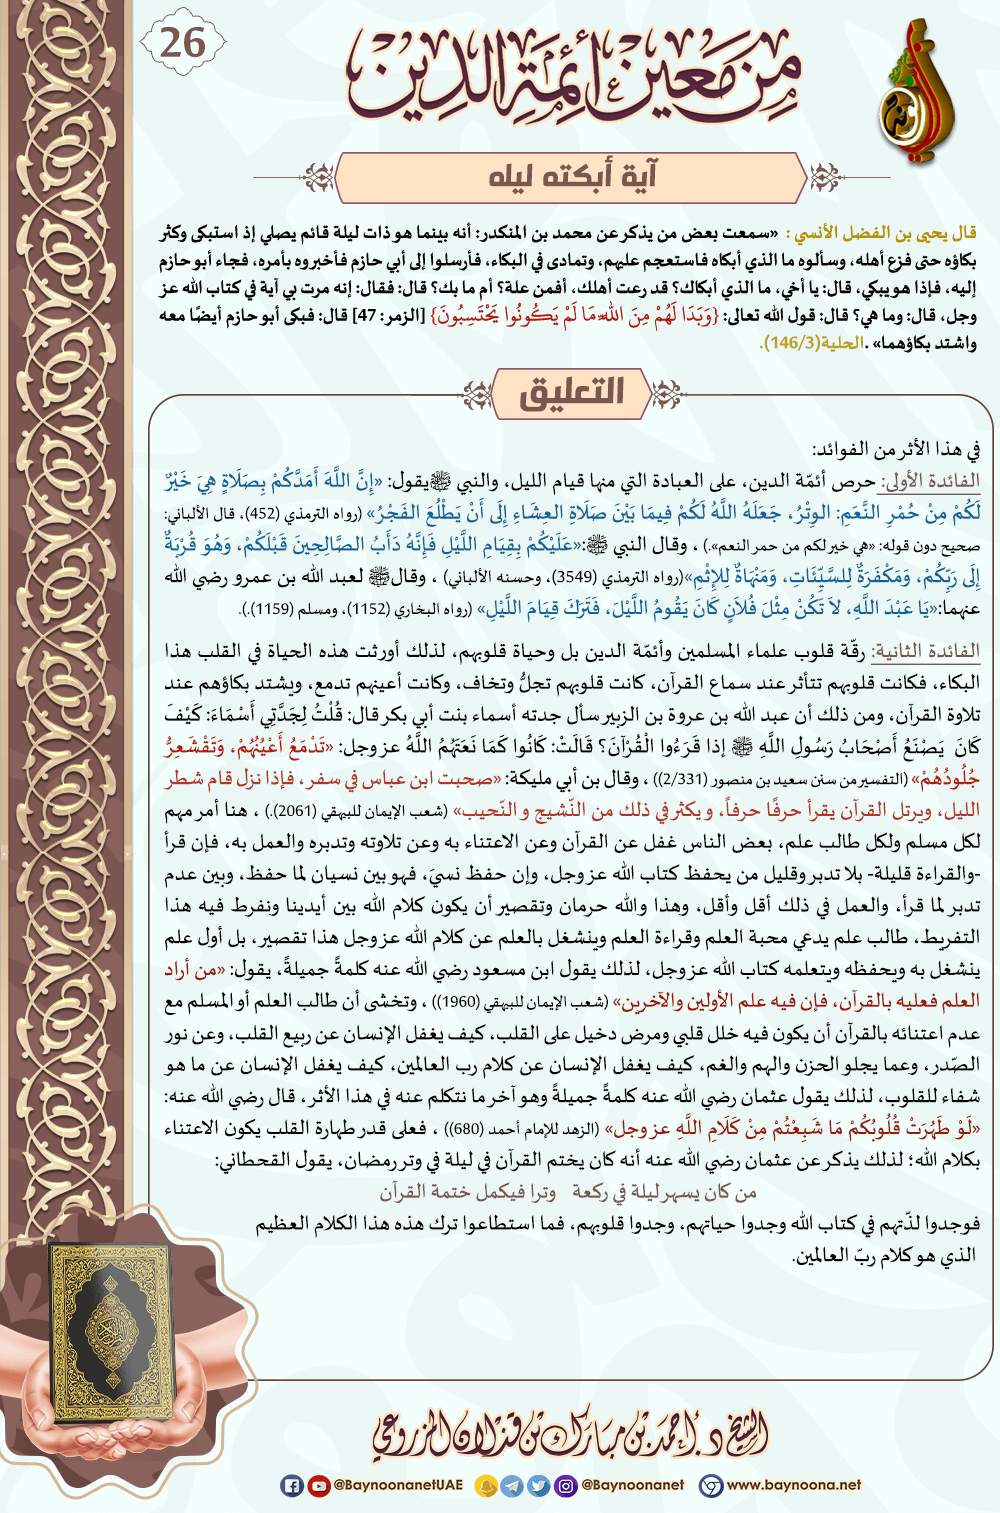 26
من معين أئمة الدين
آية أبكته ليله
قال يحيى بن الفضل الأنسي : «سمعت بعض من يذكر عن محمد بن المنكدر: أنه بينما هو ذات ليلة قائم يصلي إذ استبكى وكثر
بكاؤه حتى فزع أهله، وسألوه ما الذي أبكاه فاستعجم عليهم، وتمادى في البكاء، فأرسلوا إلى أبي حازم فأخبروه بأمره، فجاء أبو حازم
إليه، فإذا هو يبكي، قال: يا أخي، ما الذي أبكاك؟ قد رعت أهلك، أفمن علة؟ أم ما بك؟ قال: فقال: إنه مرت بي آية في كتاب الله عز
وجل، قال: وما هي؟ قال: قول الله تعالى: {وَبَدَا لَهُمْ مِنَ اللَّهِ مَا لَمْ يَكُونُوا يَحْتَسِبُونَ} [الزمر: 47] قال: فبكى أبو حازم أيضًا معه
واشتد بكاؤهما» .الحلية(146/3).
التعليق
في هذا الأثر من الفوائد:
الفائدة الأولى: حرص أئمّة الدين، على العبادة التي منها قيام الليل، والنبي ﷺ يقول: «إِنَّ اللَّهَ أَمَدَّكُمْ بِصَلَاةٍ هِيَ خَيْرٌ
لَكُمْ مِنْ حُمْرِ النَّعَمِ: الوِتْرُ، جَعَلَهُ اللَّهُ لَكُمْ فِيمَا بَيْنَ صَلَاةِ العِشَاءِ إِلَى أَنْ يَطْلُعَ الفَجْرُ» (رواه الترمذي (452)، قال الألباني:
صحيح دون قوله: «هي خير لكم من حمر النعم».) ، وقال النبي ﷺ:«عَلَيْكُمْ بِقِيَامِ اللَّيْلِ فَإِنَّهُ دَأَبُ الصَّالِحِينَ قَبْلَكُمْ، وَهُوَ قُرْبَةٌ
إِلَى رَبِّكُمْ، وَمَكْفَرَةٌ لِلسَّيِّئَاتِ، وَمَنْهَاةٌ لِلإِثْمِ»(رواه الترمذي (3549)، وحسنه الألباني) ، وقالﷺ لعبد الله بن عمرو رضي الله
عنهما:«يَا عَبْدَ اللَّهِ، لاَ تَكُنْ مِثْلَ فُلاَنٍ كَانَ يَقُومُ اللَّيْلَ، فَتَرَكَ قِيَامَ اللَّيْلِ» (رواه البخاري (1152)، ومسلم (1159).).
الفائدة الثانية: رقّة قلوب علماء المسلمين وأئمّة الدين بل وحياة قلوبهم، لذلك أورثت هذه الحياة في القلب هذا
البكاء، فكانت قلوبهم تتأثر عند سماع القرآن، كانت قلوبهم تجلُّ وتخاف، وكانت أعينهم تدمع، ويشتد بكاؤهم عند
تلاوة القرآن، ومن ذلك أن عبد الله بن عروة بن الزبير سأل جدته أسماء بنت أبي بكر قال: قُلْتُ لِجَدَّتِي أَسْمَاءَ: كَيْفَ
كَانَ يَصْنَعُ أَصْحَابُ رَسُولِ اللَّهِ ﷺ إذا قَرَءُوا الْقُرْآنَ؟ قَالَتْ: كَانُوا كَمَا نَعَتَهُمُ اللَّهُ عز وجل: «تَدْمَعُ أَعْيُنُهُمْ، وَتَقْشَعِرُّ
جُلُودُهُمْ» (التفسير من سنن سعيد بن منصور (2/331)) ، وقال بن أبي مليكة: «صحبت ابن عباس في سفر، فإذا نزل قام شطر
الليل، ويرتل القرآن يقرأ حرفًا حرفاً، ويكثر في ذلك من النّشيج و النّحيب» (شعب الإيمان للبيهقي (2061).) ، هنا أمر مهم
لكل مسلم ولكل طالب علم، بعض الناس غفل عن القرآن وعن الاعتناء به وعن تلاوته وتدبره والعمل به، فإن قرأ
-والقراءة قليلة- بلا تدبر وقليل من يحفظ كتاب الله عز وجل، وإن حفظ نسيَ، فهو بين نسيان لما حفظ، وبين عدم
تدبر لما قرأ، والعمل في ذلك أقل وأقل، وهذا والله حرمان وتقصير أن يكون كلام الله بين أيدينا ونفرط فيه هذا
التفريط، طالب علم يدعي محبة العلم وقراءة العلم وينشغل بالعلم عن كلام الله عز وجل هذا تقصير، بل أول علم
ينشغل به ويحفظه ويتعلمه كتاب الله عز وجل، لذلك يقول ابن مسعود رضي الله عنه كلمةً جميلةً، يقول: «من أراد
العلم فعليه بالقرآن، فإن فيه علم الأولين والآخرين» (شعب الإيمان للبيهقي (1960)) ، وتخشى أن طالب العلم أو المسلم مع
عدم اعتنائه بالقرآن أن يكون فيه خلل قلبي ومرض دخيل على القلب، كيف يغفل الإنسان عن ربيع القلب، وعن نور
الصّدر، وعما يجلو الحزن والهم والغم، كيف يغفل الإنسان عن كلام رب العالمين، كيف يغفل الإنسان عن ما هو
شفاء للقلوب، لذلك يقول عثمان رضي الله عنه كلمةً جميلةً وهو آخر ما نتكلم عنه في هذا الأثر، قال رضي الله عنه:
«لَوْ طَهُرَتْ قُلُوبُكُمْ مَا شَبِعْتُمْ مِنْ كَلَامِ اللَّهِ عز وجل» (الزهد للإمام أحمد (680)) ، فعلى قدر طهارة القلب يكون الاعتناء
بكلام الله؛ لذلك يذكر عن عثمان رضي الله عنه أنه كان يختم القرآن في ليلة في وتر رمضان، يقول القحطاني:
من كان يسهر ليلة في ركعة وترا فيكمل ختمة القرآن
فوجدوا لذّتهم في كتاب الله وجدوا حياتهم، وجدوا قلوبهم، فما استطاعوا ترك هذه هذا الكلام العظيم
الذي هو كلام ربّ العالمين.
الشيخ د. أحمد بن مبارك بن قذلان المزروعي
@BaynoonanetUAE @Baynoonanet www.baynoona.net